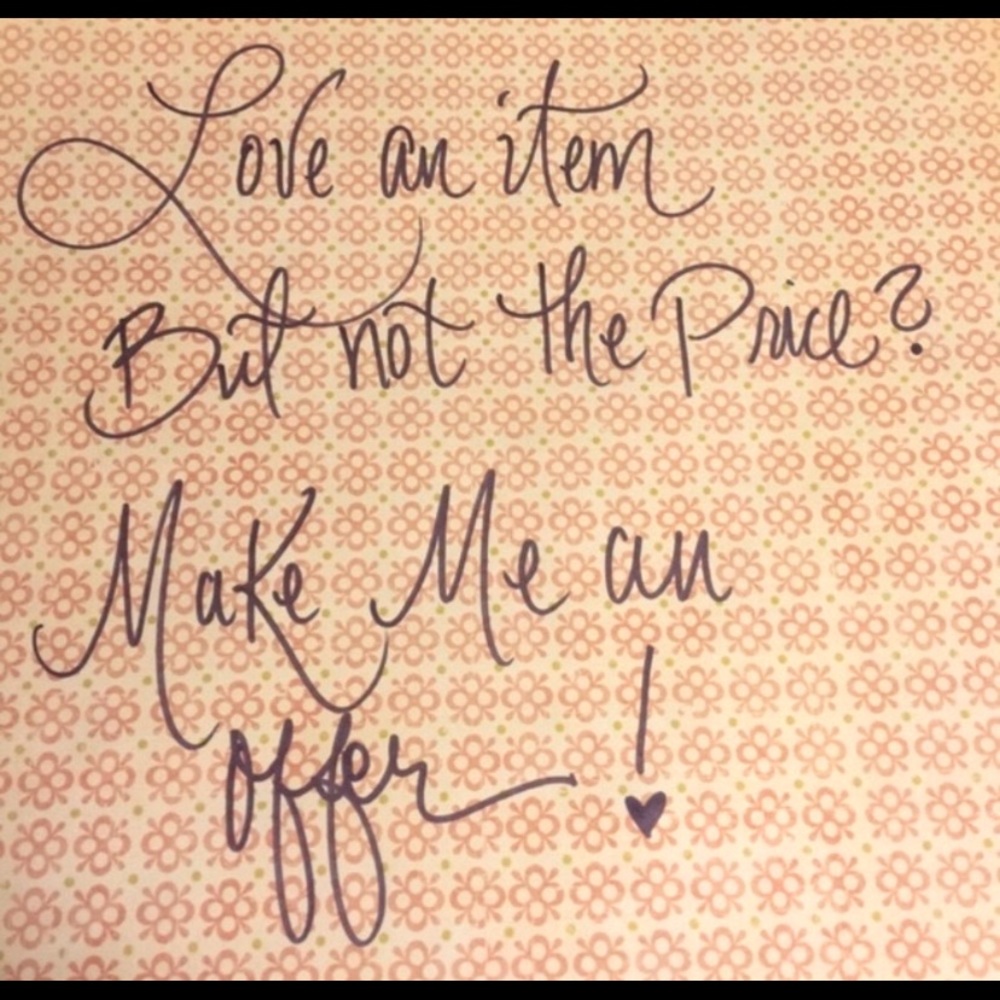 Love an item
But not the Price?
Make Me an
offer!